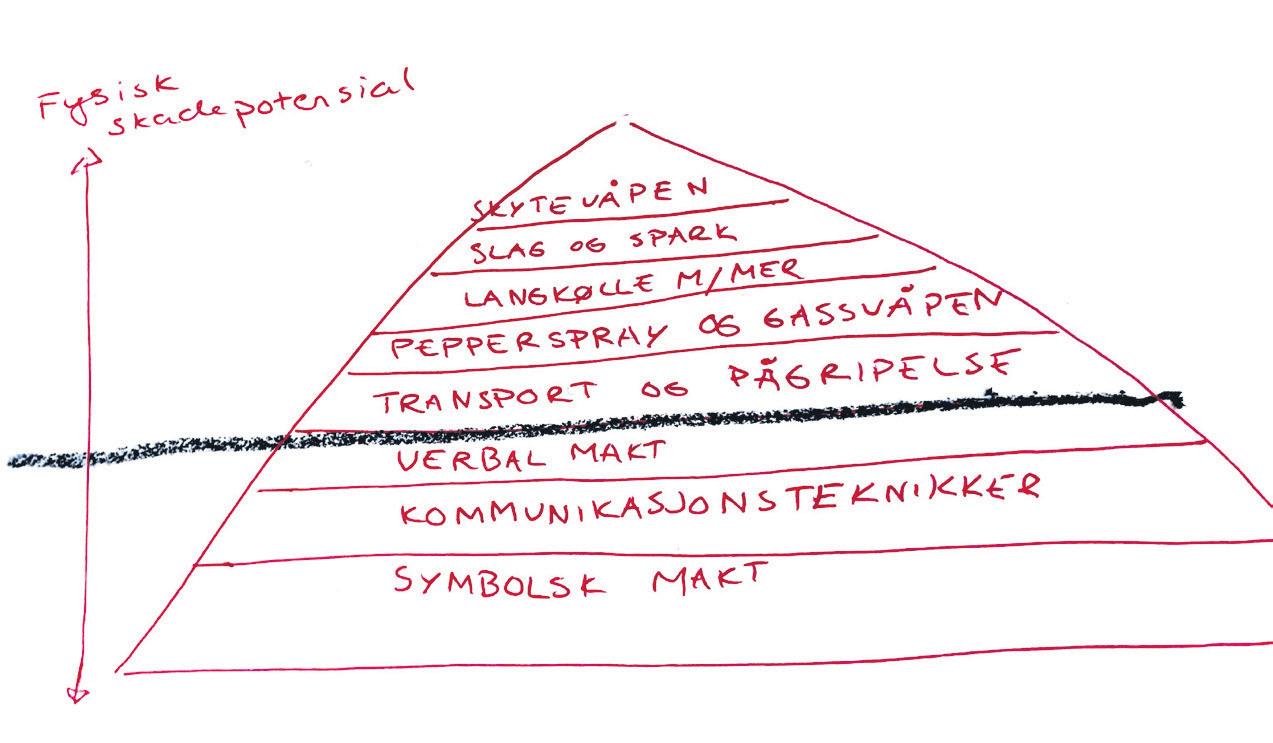 Fysisk
skadepotensial
SKYTEVÅPEN
SLAG OG SPARK
LANGKØLLE M/MER
PEPPERSPRAY OG GASSVÅPEN
TRANSPORT OG PÅGRIPELSE
VERBAL MAKT
KOMMUNIKASJONSTEKNIKKER
SYMBOLSK MAKT